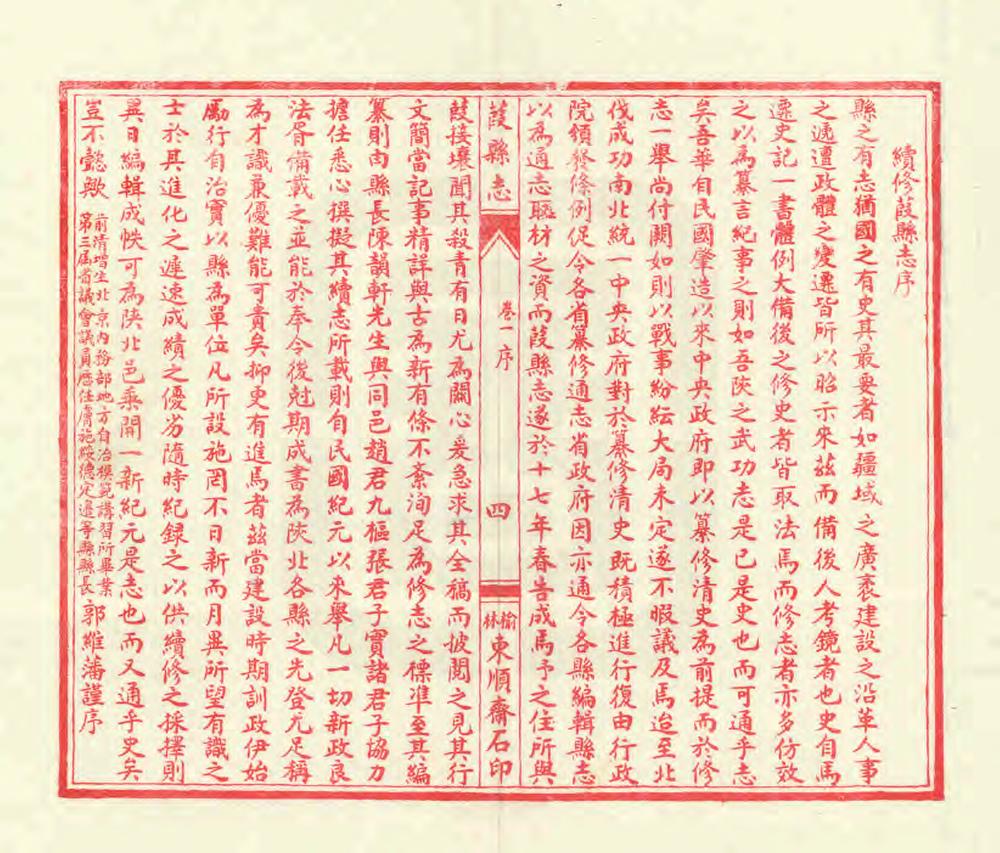 續修葭縣志序
縣之有志猶國之有史其最要者如疆域之廣袤建設之沿革人事
之遞邅政體之變遷皆所以昭示來茲而備後人考鏡者也史自馬
遷史記一書體例大備後之修史者皆取法焉而修志者亦多仿效
之以為纂言紀事之則如吾陝之武功志是已是史也而可通乎志
矣吾華自民國肇造以來中央政府即以纂修清史為前提而於修
志一舉尚付闕如則以戰事紛紜大局未定遂不暇議及焉迨至北
伐成功南北統一中央政府對於纂修清史既積極進行復由行政
院頒發條例促令各省纂修通志省政府因亦通令各縣編輯縣志
以為通志取材之資而葭縣志遂於十七年春告成焉予之住所與
葭縣志
卷一 序
四
榆林東順齋石印
葭接壤聞其殺青有日尤為關心爰急求其全稿而披閱之見其行
文簡當記事精詳與古為新有條不紊洵足為修志之標準至其編
纂則由縣長陳韻軒先生與同邑趙君九樞張君子實諸君子協力
擔任悉心撰擬其續志所載則自民國紀元以來舉凡一切新政良
法胥備載之並能於奉令後尅期成書為陝北各縣之先登尤足稱
為才識兼優難能可貴矣抑更有進焉者茲當建設時期訓政伊始
勵行自治實以縣為單位凡所設施罔不日新而月異所望有識之
士於其進化之遲速成績之優劣隨時紀録之以供續修之採擇則
異日編輯成帙可為陝北邑乘開一新紀元是志也而又通乎史矣
豈不懿歟 前清增生北京內務部地方自治模範講習所畢業
第三届省議會議員歷任膚施綏德定邊等縣縣長 郭維藩謹序